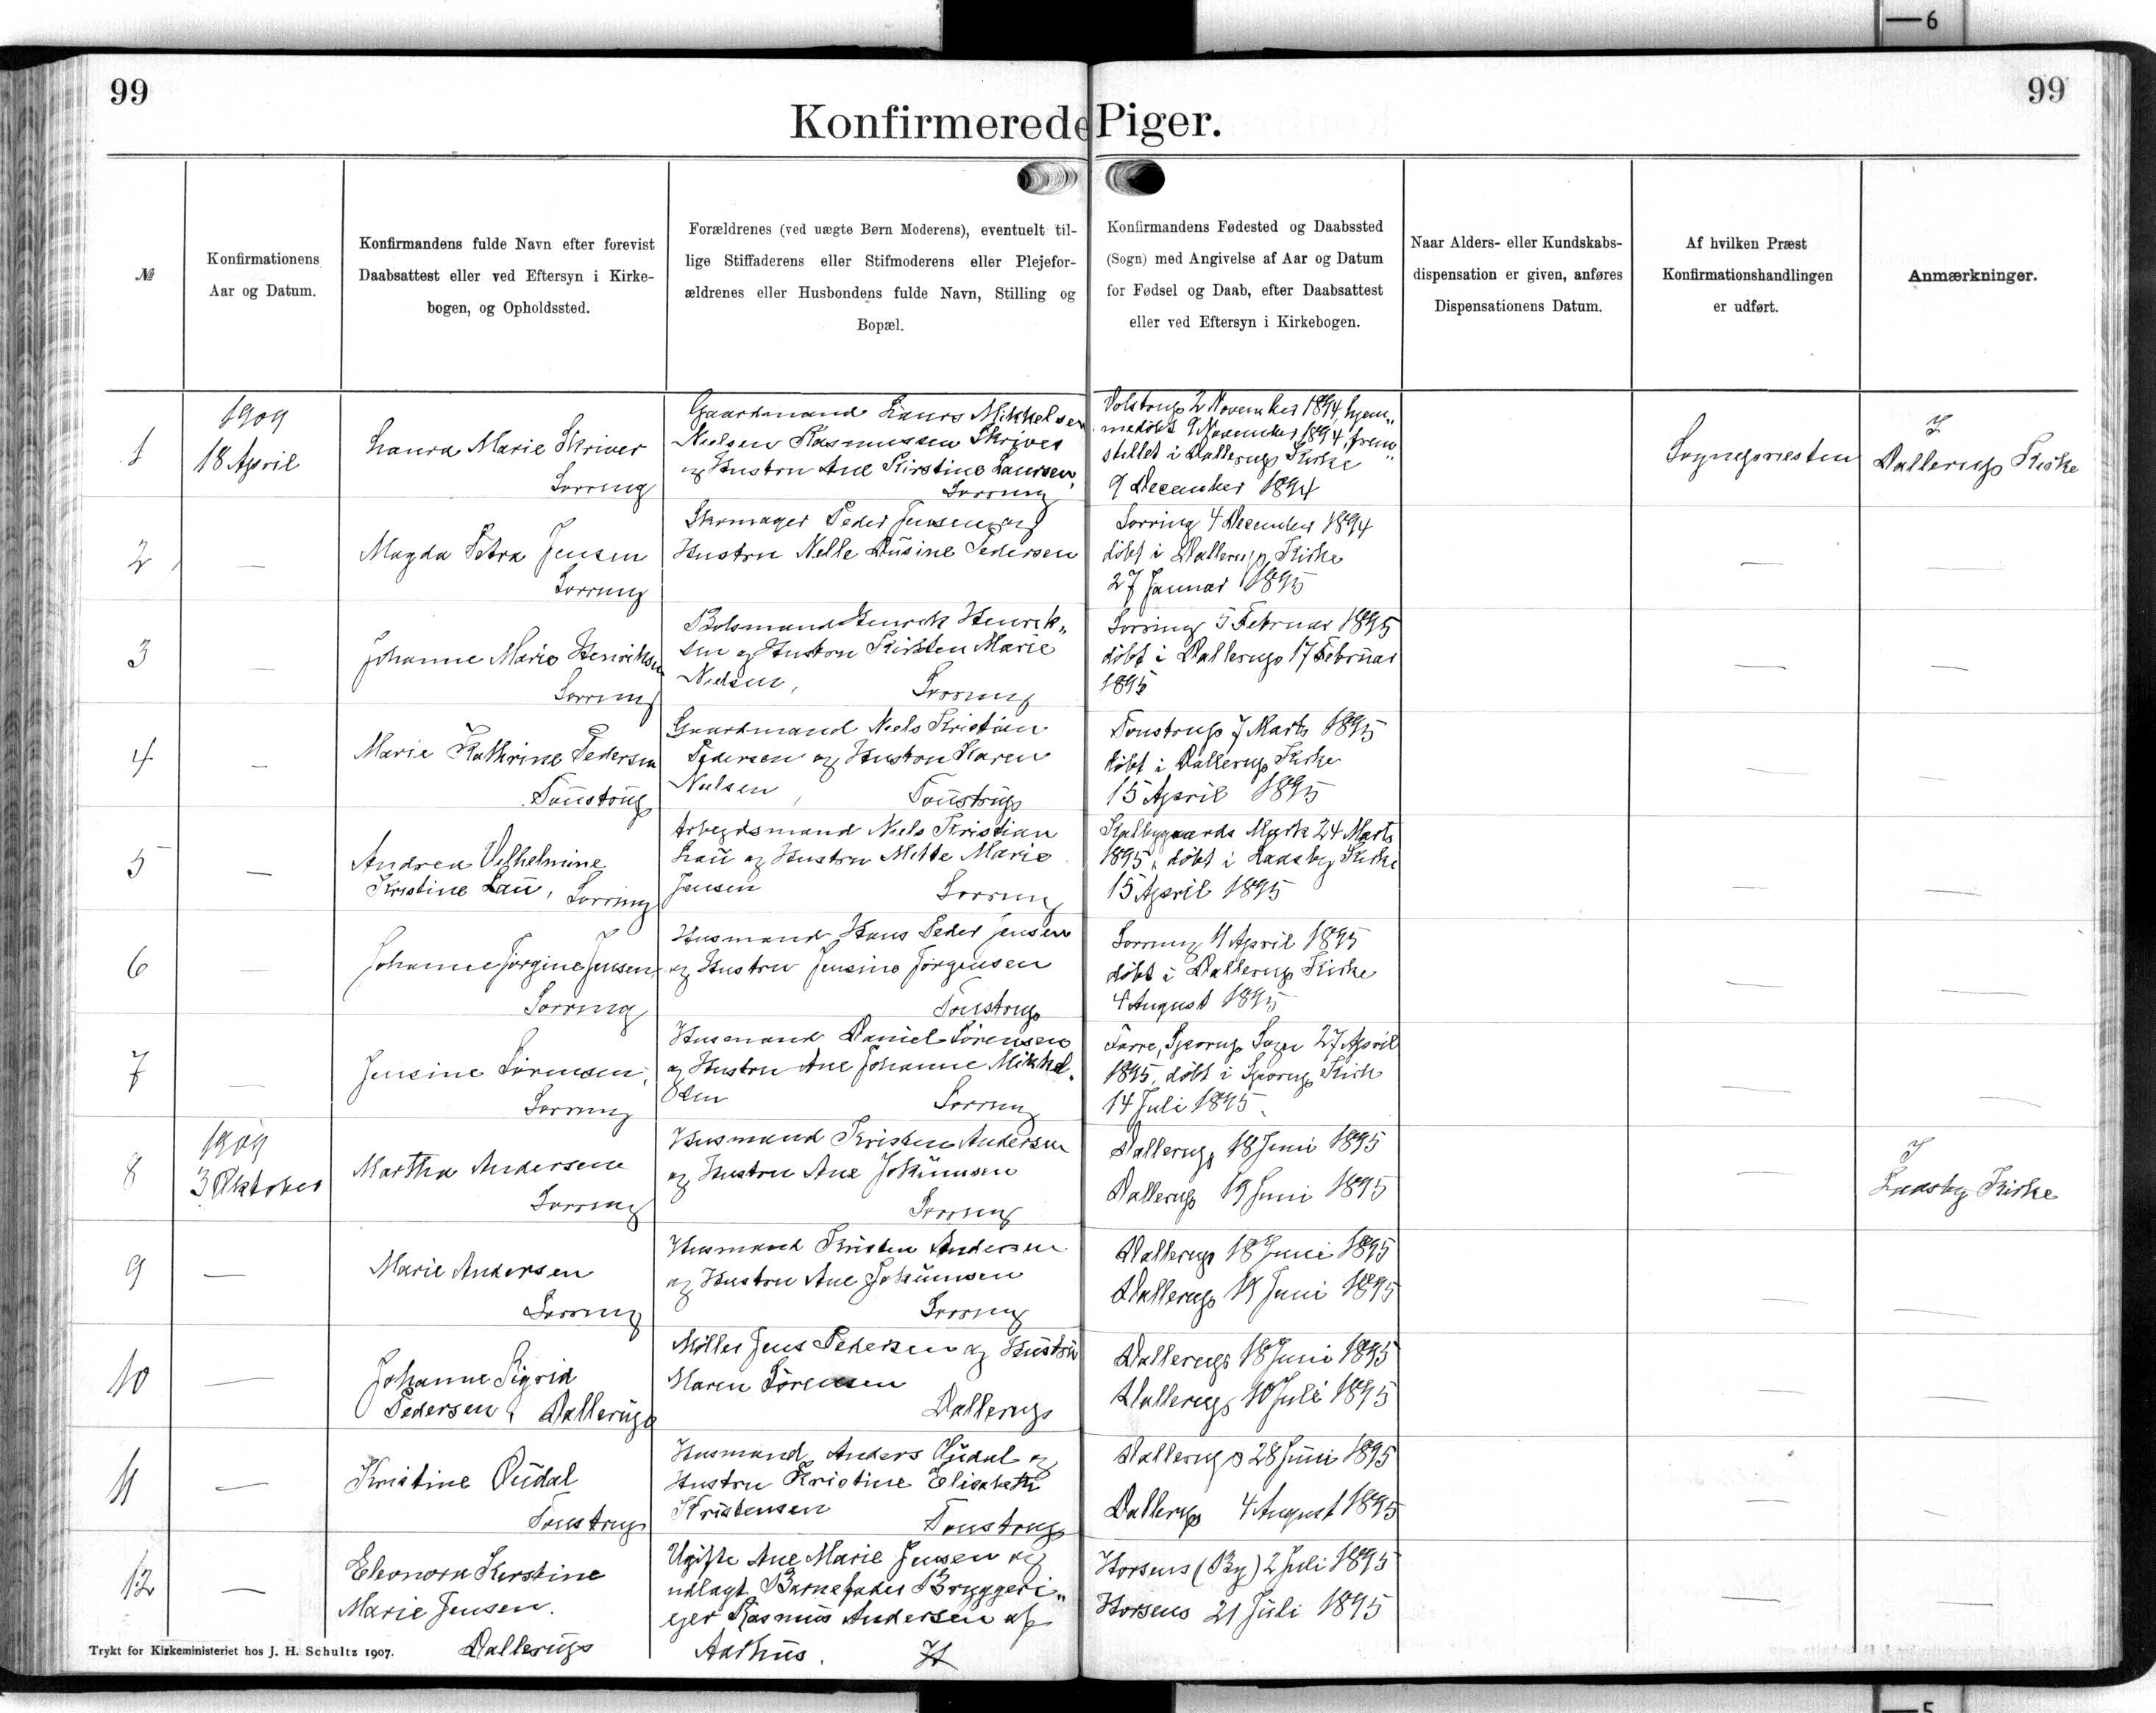 6
99
99
Konfirmerede Piger.
№
Konfirmationens
Aar og Datum.
Konfirmandens fulde Navn efter forevist
Daabsattest eller ved Eftersyn i Kirke-
bogen, og Opholdssted.
Forældrenes (ved uægte Børn Moderens), eventuelt til-
lige Stiffaderens eller Stifmoderens eller Plejefor-
ældrenes eller Husbondens fulde Navn, Stilling og
Bopæl.
Konfirmandens Fødested og Daabssted
(Sogn) med Angivelse af Aar og Datum
for Fødsel og Daab, efter Daabsattest
eller ved Eftersyn i Kirkebogen.
Naar Alders- eller Kundskabs-
dispensation er given, anføres
Dispensationens Datum.
Af hvilken Præst
Konfirmationshandlingen
er udført.
Anmærkninger.
1
1909
18 April
Laura Marie Skriver
Sorring
Gaardmand Laurs Mikkelsen
Nielsen Rasmussen Skriver
og Hustru Ane Kirstine Laursen,
Sorring
Volstrup 2 November 1894, hjem„
medøbt 9 November 1894, frem„
stillet i Dallerup Kirke
9 December 1894
Sognepræsten
I
Dallerup Kirke
2
—
Magda Petra Jensen
Sorring
Skomager Peder Jensen og
Hustru Nelle Dusine Pedersen
Sorring 4 December 1894
døbt i Dallerup Kirke
27 Januar 1895
—
—
3
—
Johanne Marie Henriksen
Sorring
Bolsmand Henrik Henrik„
sen og Hustru Kirsten Marie
Nielsen, Sorring
Sorring 5 Februar 1895
døbt i Dallerup 17 Februar
1895
—
—
4
—
Marie Kathrine Pedersen
Toustrup
Gaardmand Niels Kristian
Pedersen og Hustru Karen
Nielsen, Toustrup
Toustrup 7 Marts 1895
døbt i Dallerup Kirke
15 April 1895
—
—
5
—
Andrea Vilhelmine
Kristine Lau, Sorring
Arbejdsmand Niels Kristian
Lau og Hustru Mette Marie
Jensen Sorring
Kalbygaards Mark 24 Marts
1895, døbt i Laasby Kirke
15 April 1895
—
—
6
—
Johanne Jørgine Jensen,
Sorring
Husmand Hans Peder Jensen
og Hustru Jensine Jørgensen
Toustrup
Sorring 11 April 1895
døbt i Dallerup Kirke
4 August 1895
—
—
7
—
Jensine Sørensen,
Sorring
Husmand Daniel Sørensen
og Hustru Ane Johanne Mikkel„
sen Sorring
Farre, Sporup Sogn 27 April
1895, døbt i Sporup Kirk
14 Juli 1895.
—
—
8
1909
3 Oktober
Martha Andersen
Sorring
Husmand Kristen Andersen
og Hustru Ane Johannsen
Sorring
Dallerup 18 Juni 1895
Dallerup 19 Juni 1895
—
I
Laasby Kirke
9
—
Marie Andersen
Sorring
Husmand Kristen Andersen
og Hustru Ane Johannsen
Sorring
Dallerup 18 Juni 1895
Dallerup 19 Juni 1895
—
—
10
—
Johanne Sigrid
Pedersen, Dallerup
Møller Jens Pedersen og Hustru
Maren Sørensen
Dallerup
Dallerup 18 Juni 1895
Dallerup 10 Juli 1895
—
—
11
—
Kristine Oudal
Toustrup
Husmand Anders Oudal og
Hustru Kristine Elisabeth
Kristensen Toustrup
Dallerup 28 Juni 1895
Dallerup 4 August 1895
—
—
12
—
Eleonora Kirstine
Marie Jensen.
Dallerup
Ugifte Ane Marie Jensen og
udlagt Barnefader Bryggeri„
ejer Rasmus Andersen af
Aarhus.
Horsens (By) 2 Juli 1895
Horsens 21 Juli 1895
—
—
Trykt for Kirkeministeriet hos J. H. Schultz 1907.
5